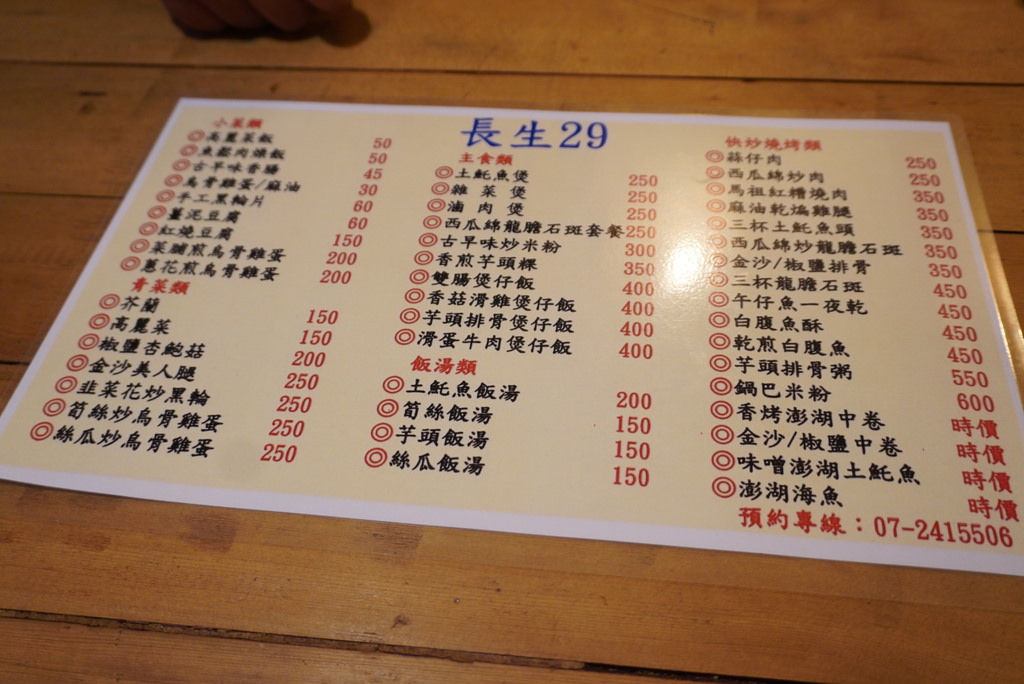 長生29
小菜類
◎高麗菜飯 50
◎魚鬆肉燥飯 50
◎古早味香腸 45
◎烏骨雞蛋/麻油 30
◎手工黑輪片 60
◎薑泥豆腐 60
◎紅燒豆腐 150
◎菜脯煎烏骨雞蛋 200
◎蔥花煎烏骨雞蛋 200
青菜類
◎芥蘭 150
◎高麗菜 150
◎椒鹽杏鮑菇 200
◎金沙美人腿 250
◎韭菜花炒黑輪 250
◎筍絲炒烏骨雞蛋 250
◎絲瓜炒烏骨雞蛋 250
主食類
◎土魠魚煲 250
◎雜菜煲 250
◎滷肉煲 250
◎西瓜綿龍膽石斑套餐 250
◎古早味炒米粉 300
◎香煎芋頭粿 350
◎雙腸煲仔飯 400
◎香菇滑雞煲仔飯 400
◎芋頭排骨煲仔飯 400
◎滑蛋牛肉煲仔飯 400
飯湯類
◎土魠魚飯湯 200
◎筍絲飯湯 150
◎芋頭飯湯 150
◎絲瓜飯湯 150
快炒燒烤類
◎蒜仔肉 250
◎西瓜綿炒肉 250
◎馬祖紅糟燒肉 350
◎麻油乾煸雞腿 350
◎三杯土魠魚頭 350
◎西瓜綿炒龍膽石斑 350
◎金沙/椒鹽排骨 350
◎三杯龍膽石斑 450
◎午仔魚一夜乾 450
◎白腹魚酥 450
◎乾煎白腹魚 450
◎芋頭排骨粥 550
◎鍋巴米粉 600
◎香烤澎湖中卷 時價
◎金沙/椒鹽中卷 時價
◎味噌澎湖土魠魚 時價
◎澎湖海魚 時價
預約專線：07-2415506